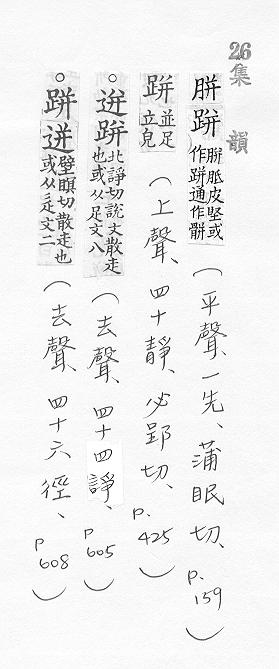 26
集韻
腁跰 腁胝皮堅或作跰通作骿 (平聲、一先、蒲眠切、p.159)
跰 並足立皃 (上聲、四十靜、必郢切、p.425)
。迸跰 北諍切說文散走也或从足文八 (去聲、四十四諍、p.605)
。跰迸 壁瞑切散走也或从辵文二 (去聲、四十六徑、p608)